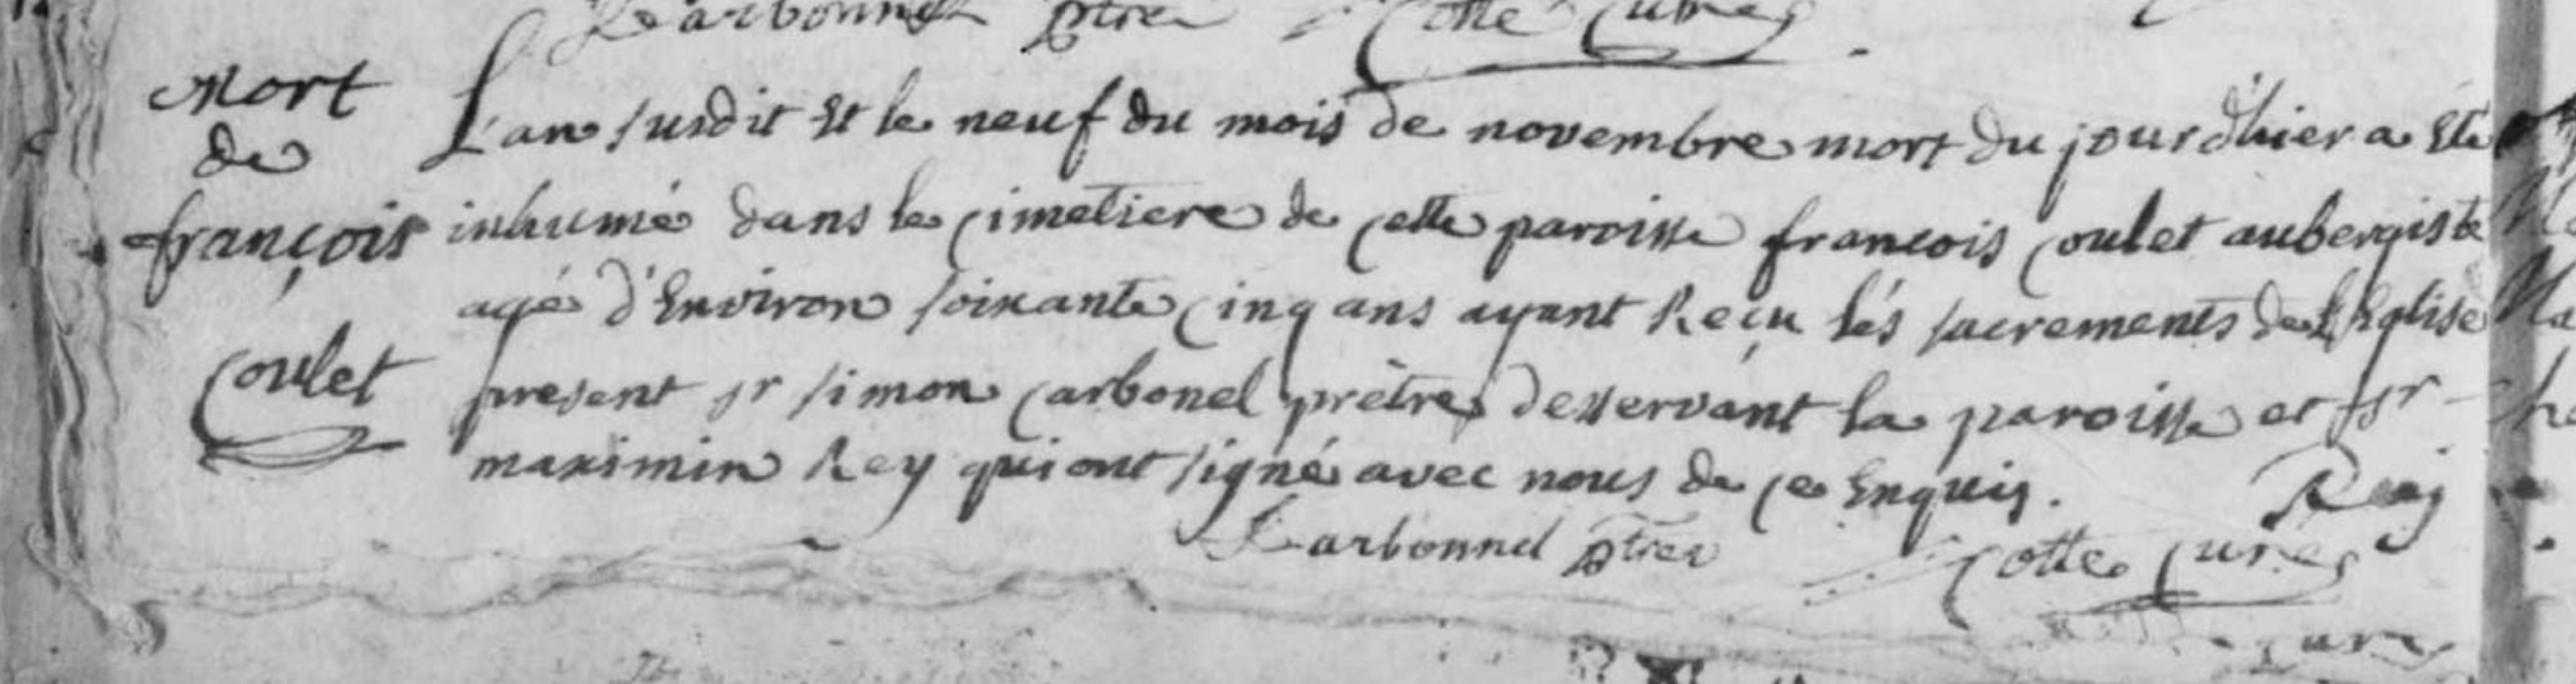 Carbonnel ptre Cotte Curé
Mort
de
françois
Coulet
L'an susdit Et le neuf du mois de novembre mort du jour d'hier a Eté
inhumé dans le Cimetiere de Cette paroisse francois Coulet aubergiste
agé d'Environ soixante Cinq ans ayant Reçu lés sacrements de L'Eglise
present sr simon Carbonel prètre desservant la paroisse et sr
maximin Rey qui ont signé avec nous de Ce Enquis.
Rey
Carbonnel ptre Cotte Curé